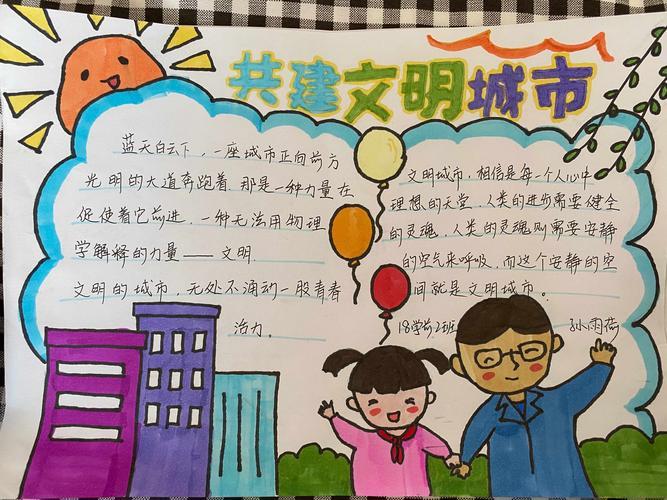 共建文明城市
蓝天白云下，一座城市正向前方
光明的大道奔跑着，那是一种力量在
促使着它前进，一种无法用物理
学解释的力量——文明.
文明的城市，无处不涌动一股青春
活力.
文明城市，相信是每一个人心中
理想的天堂，人类的进步需要健全
的灵魂，人类的灵魂则需要安静
的空气来呼吸，而这个安静的空
间就是文明城市。
18学前2班
孙雨荷